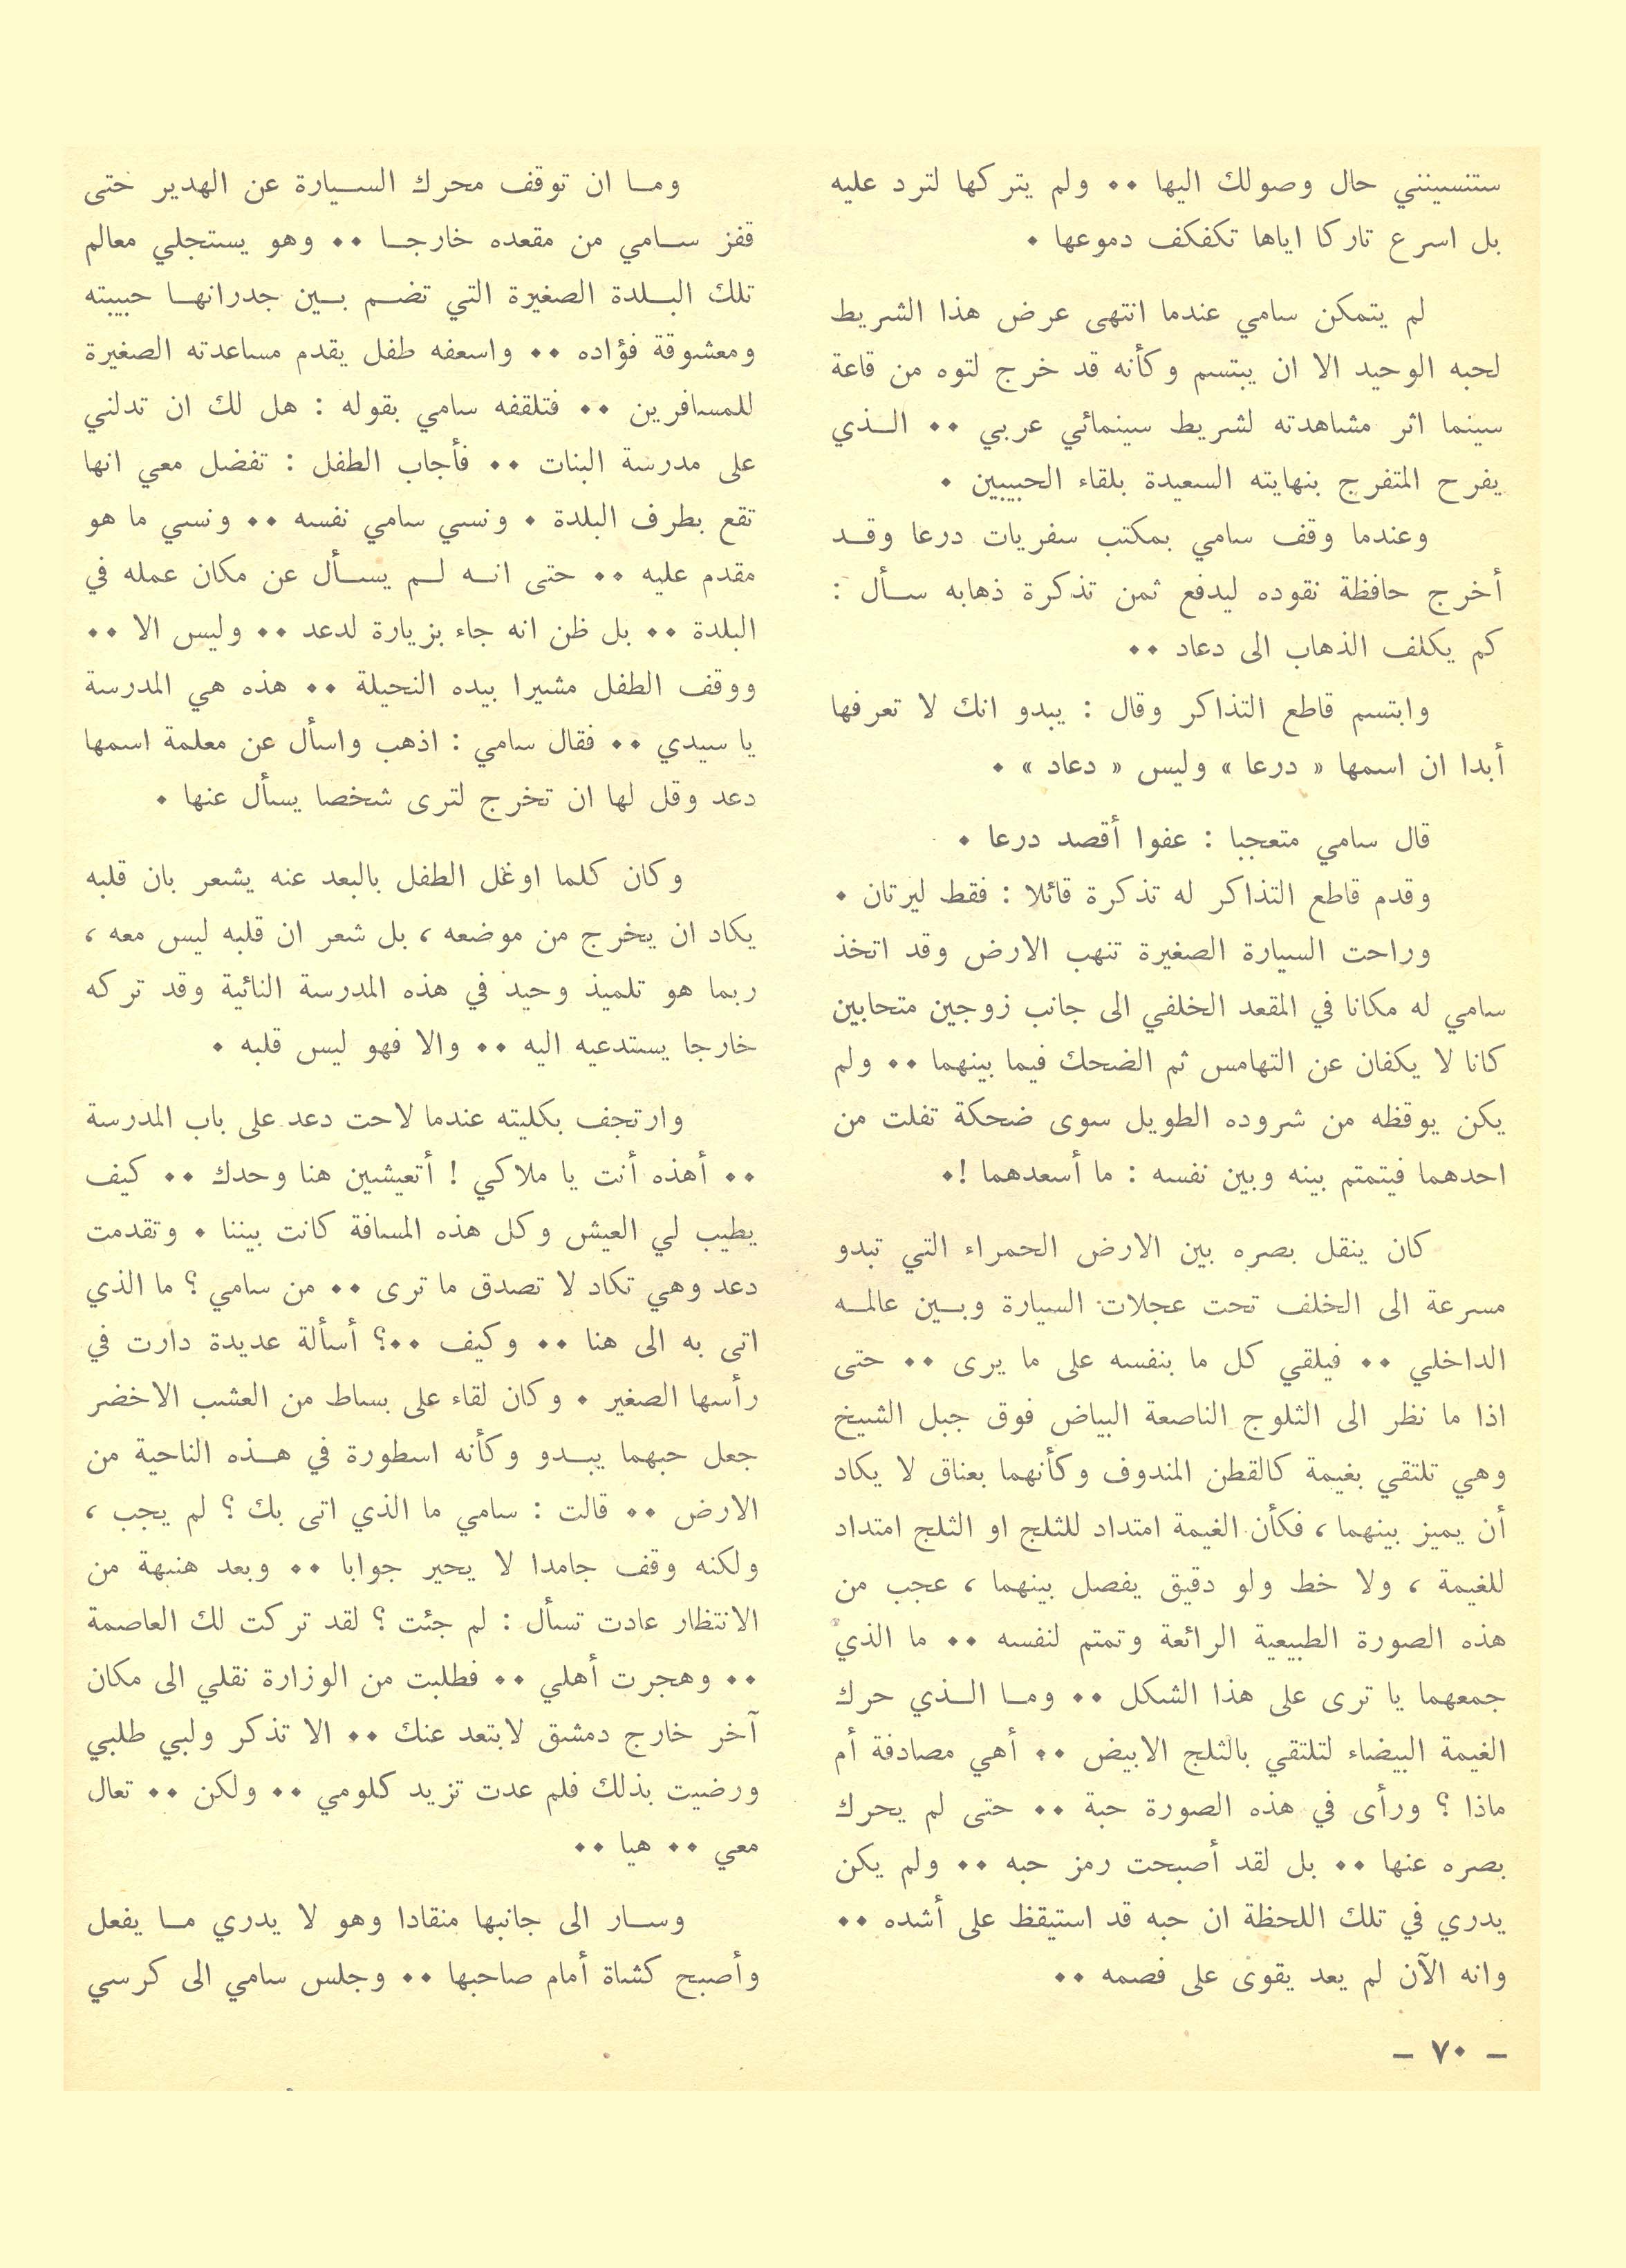 ستنسينني حال وصولك اليها ٠٠ ولم يتركها لترد عليه
بل اسرع تاركا اياها تكفكف دموعها ٠
لم يتمكن سامي عندما انتهى عرض هذا الشريط
لحبه الوحيد الا ان يبتسم وكأنه قد خرج لتوه من قاعة
سينما اثر مشاهدته لشريط سينمائي عربي ٠٠ الذي
يفرح المتفرج بنهايته السعيدة بلقاء الحبيبين ٠
وعندما وقف سامي بمكتب سفريات درعا وقد
أخرج حافظة نقوده ليدفع ثمن تذكرة ذهابه سأل :
كم يكلف الذهاب الى دعاد ٠٠
وابتسم قاطع التذاكر وقال : يبدو انك لا تعرفها
أبدا ان اسمها « درعا » وليس « دعاد » ٠
قال سامي متعجبا : عفوا أقصد درعا ٠
وقدم قاطع التذاكر له تذكرة قائلا : فقط ليرتان ٠
وراحت السيارة الصغيرة تنهب الارض وقد اتخذ
سامي له مكانا في المقعد الخلفي الى جانب زوجين متحابين
كانا لا يكفان عن التهامس ثم الضحك فيما بينهما ٠٠ ولم
يكن يوقظه من شروده الطويل سوى ضحكة تفلت من
احدهما فيتمتم بينه وبين نفسه : ما أسعدهما !٠
كان ينقل بصره بين الارض الحمراء التي تبدو
مسرعة الى الخلف تحت عجلات السيارة وبين عالمه
الداخلي ٠٠ فيلقي كل ما بنفسه على ما يرى ٠٠ حتى
اذا ما نظر الى الثلوج الناصعة البياض فوق جبل الشيخ
وهي تلتقي بغيمة كالقطن المندوف وكأنهما بعناق لا يكاد
أن يميز بينهما ، فكأن الغيمة امتداد للثلج او الثلج امتداد
للغيمة ، ولا خط ولو دقيق يفصل بينهما ، عجب من
هذه الصورة الطبيعية الرائعة وتمتم لنفسه ٠٠ ما الذي
جمعهما يا ترى على هذا الشكل ٠٠ وما الذي حرك
الغيمة البيضاء لتلتقي بالثلج الابيض ٠٠ أهي مصادفة أم
ماذا ؟ ورأى في هذه الصورة حبة ٠٠ حتى لم يحرك
بصره عنها ٠٠ بل لقد أصبحت رمز حبه ٠٠ ولم يكن
يدري في تلك اللحظة ان حبه قد استيقظ على أشده ٠٠
وانه الآن لم يعد يقوى على فصمه ٠٠
وما ان توقف محرك السيارة عن الهدير حتى
قفز سامي من مقعده خارجا ٠٠ وهو يستجلي معالم
تلك البلدة الصغيرة التي تضم بين جدرانها حبيبته
ومعشوقة فؤاده ٠٠ واسعفه طفل يقدم مساعدته الصغيرة
للمسافرين ٠٠ فتلقفه سامي بقوله : هل لك ان تدلني
على مدرسة البنات ٠٠ فأجاب الطفل : تفضل معي انها
تقع بطرف البلدة ٠ ونسي سامي نفسه ٠٠ ونسي ما هو
مقدم عليه ٠٠ حتى انه لم يسأل عن مكان عمله في
البلدة ٠٠ بل ظن انه جاء بزيارة لدعد ٠٠ وليس الا ٠٠
ووقف الطفل مشيرا بيده النحيلة ٠٠ هذه هي المدرسة
يا سيدي ٠٠ فقال سامي : اذهب واسأل عن معلمة اسمها
دعد وقل لها ان تخرج لترى شخصا يسأل عنها ٠
وكان كلما اوغل الطفل بالبعد عنه يشعر بان قلبه
يكاد ان يخرج من موضعه ، بل شعر ان قلبه ليس معه ،
ربما هو تلميذ وحيد في هذه المدرسة النائية وقد تركه
خارجا يستدعيه اليه ٠٠ والا فهو ليس قلبه ٠
وارتجف بكليته عندما لاحت دعد على باب المدرسة
٠٠ أهذه أنت يا ملاكي ! أتعيشين هنا وحدك ٠٠ كيف
يطيب لي العيش وكل هذه المسافة كانت بيننا ٠ وتقدمت
دعد وهي تكاد لا تصدق ما ترى ٠٠ من سامي ؟ ما الذي
اتى به الى هنا ٠٠ وكيف ٠٠؟ أسألة عديدة دارت في
رأسها الصغير ٠ وكان لقاء على بساط من العشب الاخضر
جعل حبهما يبدو وكأنه اسطورة في هذه الناحية من
الارض ٠٠ قالت : سامي ما الذي اتى بك ؟ لم يجب ،
ولكنه وقف جامدا لا يحير جوابا ٠٠ وبعد هنبهة من
الانتظار عادت تسأل : لم جئت ؟ لقد تركت لك العاصمة
٠٠ وهجرت أهلي ٠٠ فطلبت من الوزارة نقلي الى مكان
آخر خارج دمشق لابتعد عنك ٠٠ الا تذكر ولبي طلبي
ورضيت بذلك فلم عدت تزيد كلومي ٠٠ ولكن ٠٠ تعال
معي ٠٠ هيا ٠٠
وسار الى جانبها منقادا وهو لا يدري ما يفعل
وأصبح كشاة أمام صاحبها ٠٠ وجلس سامي الى كرسي
– ٧٠ –